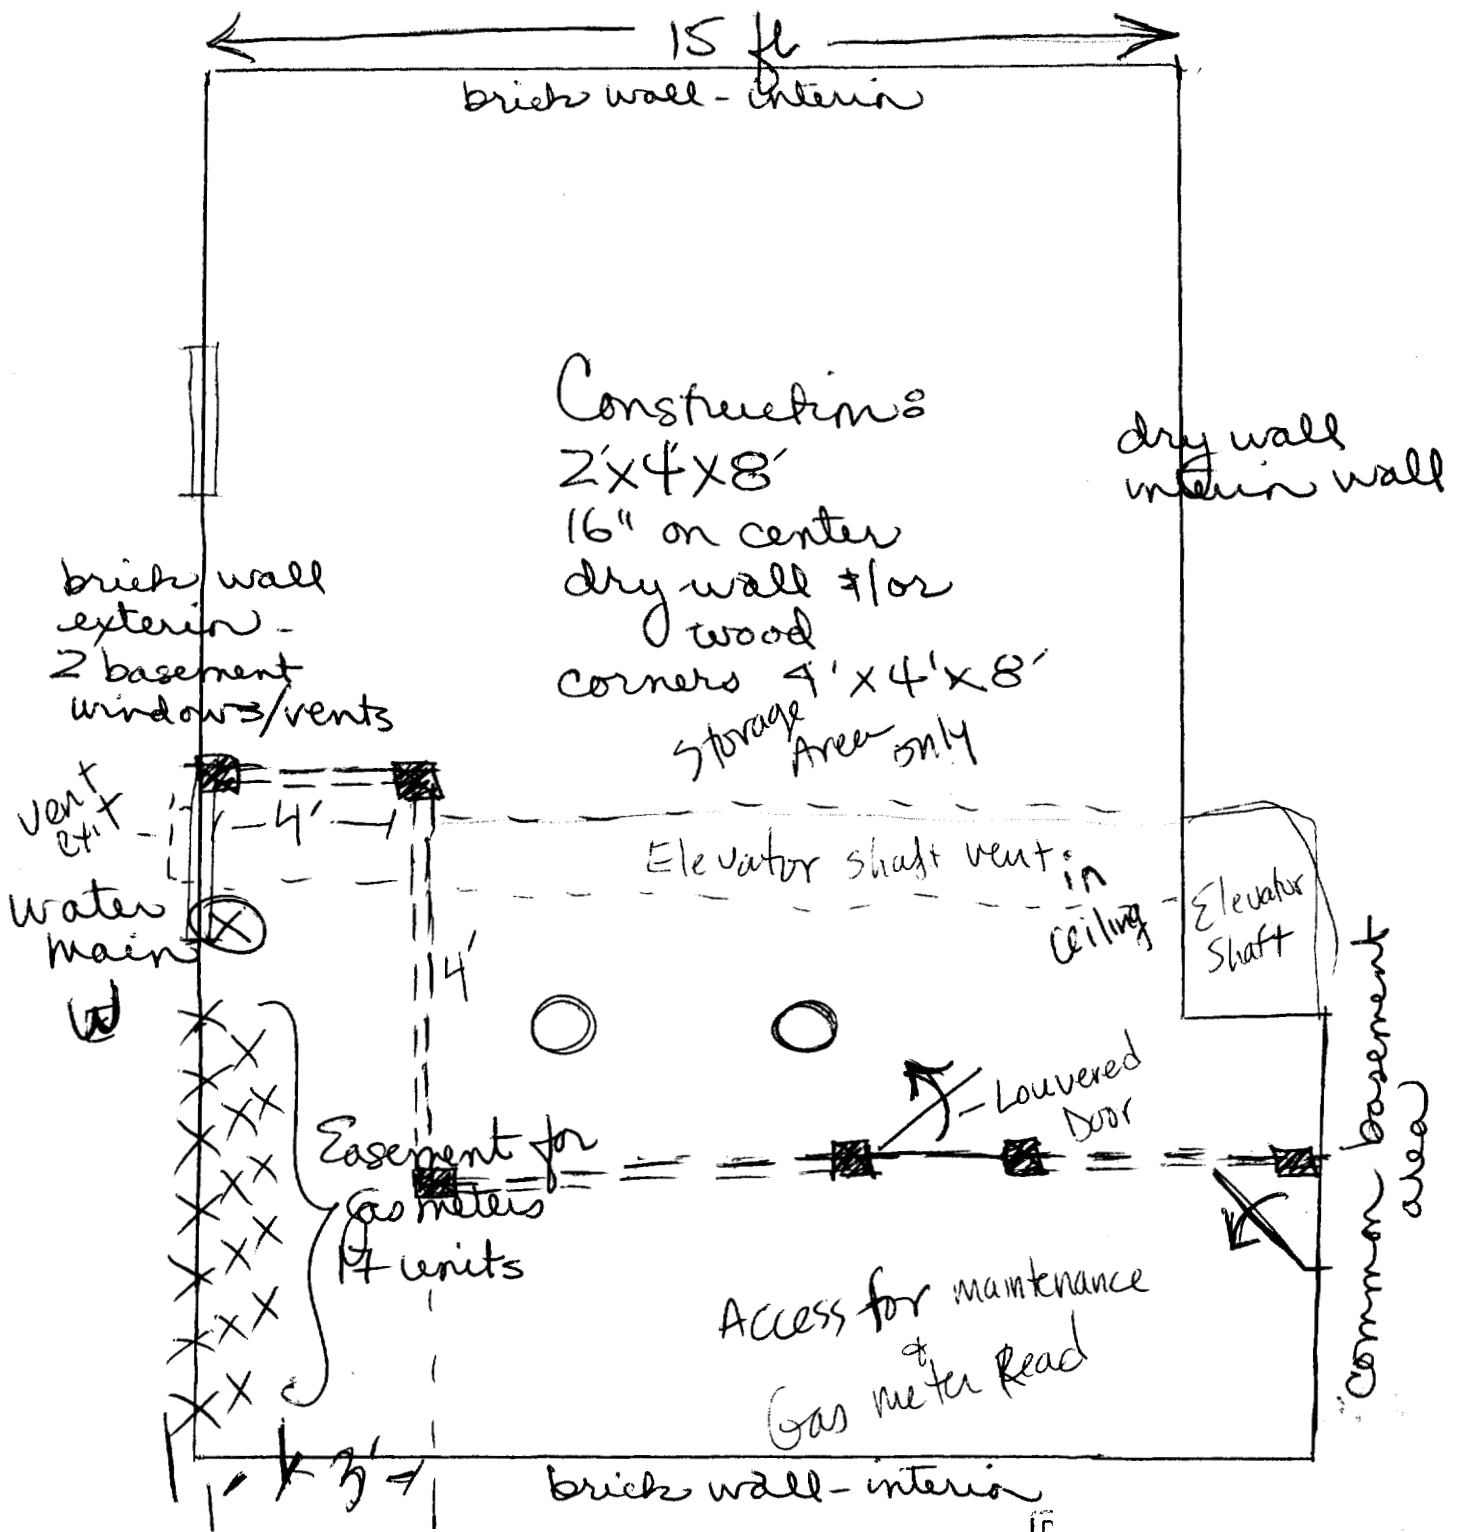 15 ft
brick wall - interior
Construction:
2'x4'x8'
16" on center
dry wall &/or
wood
corners 4'x4'x8'
Storage
Area only
dry wall
interior wall
brick wall
exterior -
2 basement
windows/vents
vent
exit
4'
Elevator shaft vent in
ceiling
Elevator
Shaft
water
main
4'
Louvered
Door
Easement for
gas meters
17 units
Common basement
area
Access for maintenance
+
Gas meter Read
3'
brick wall - interior